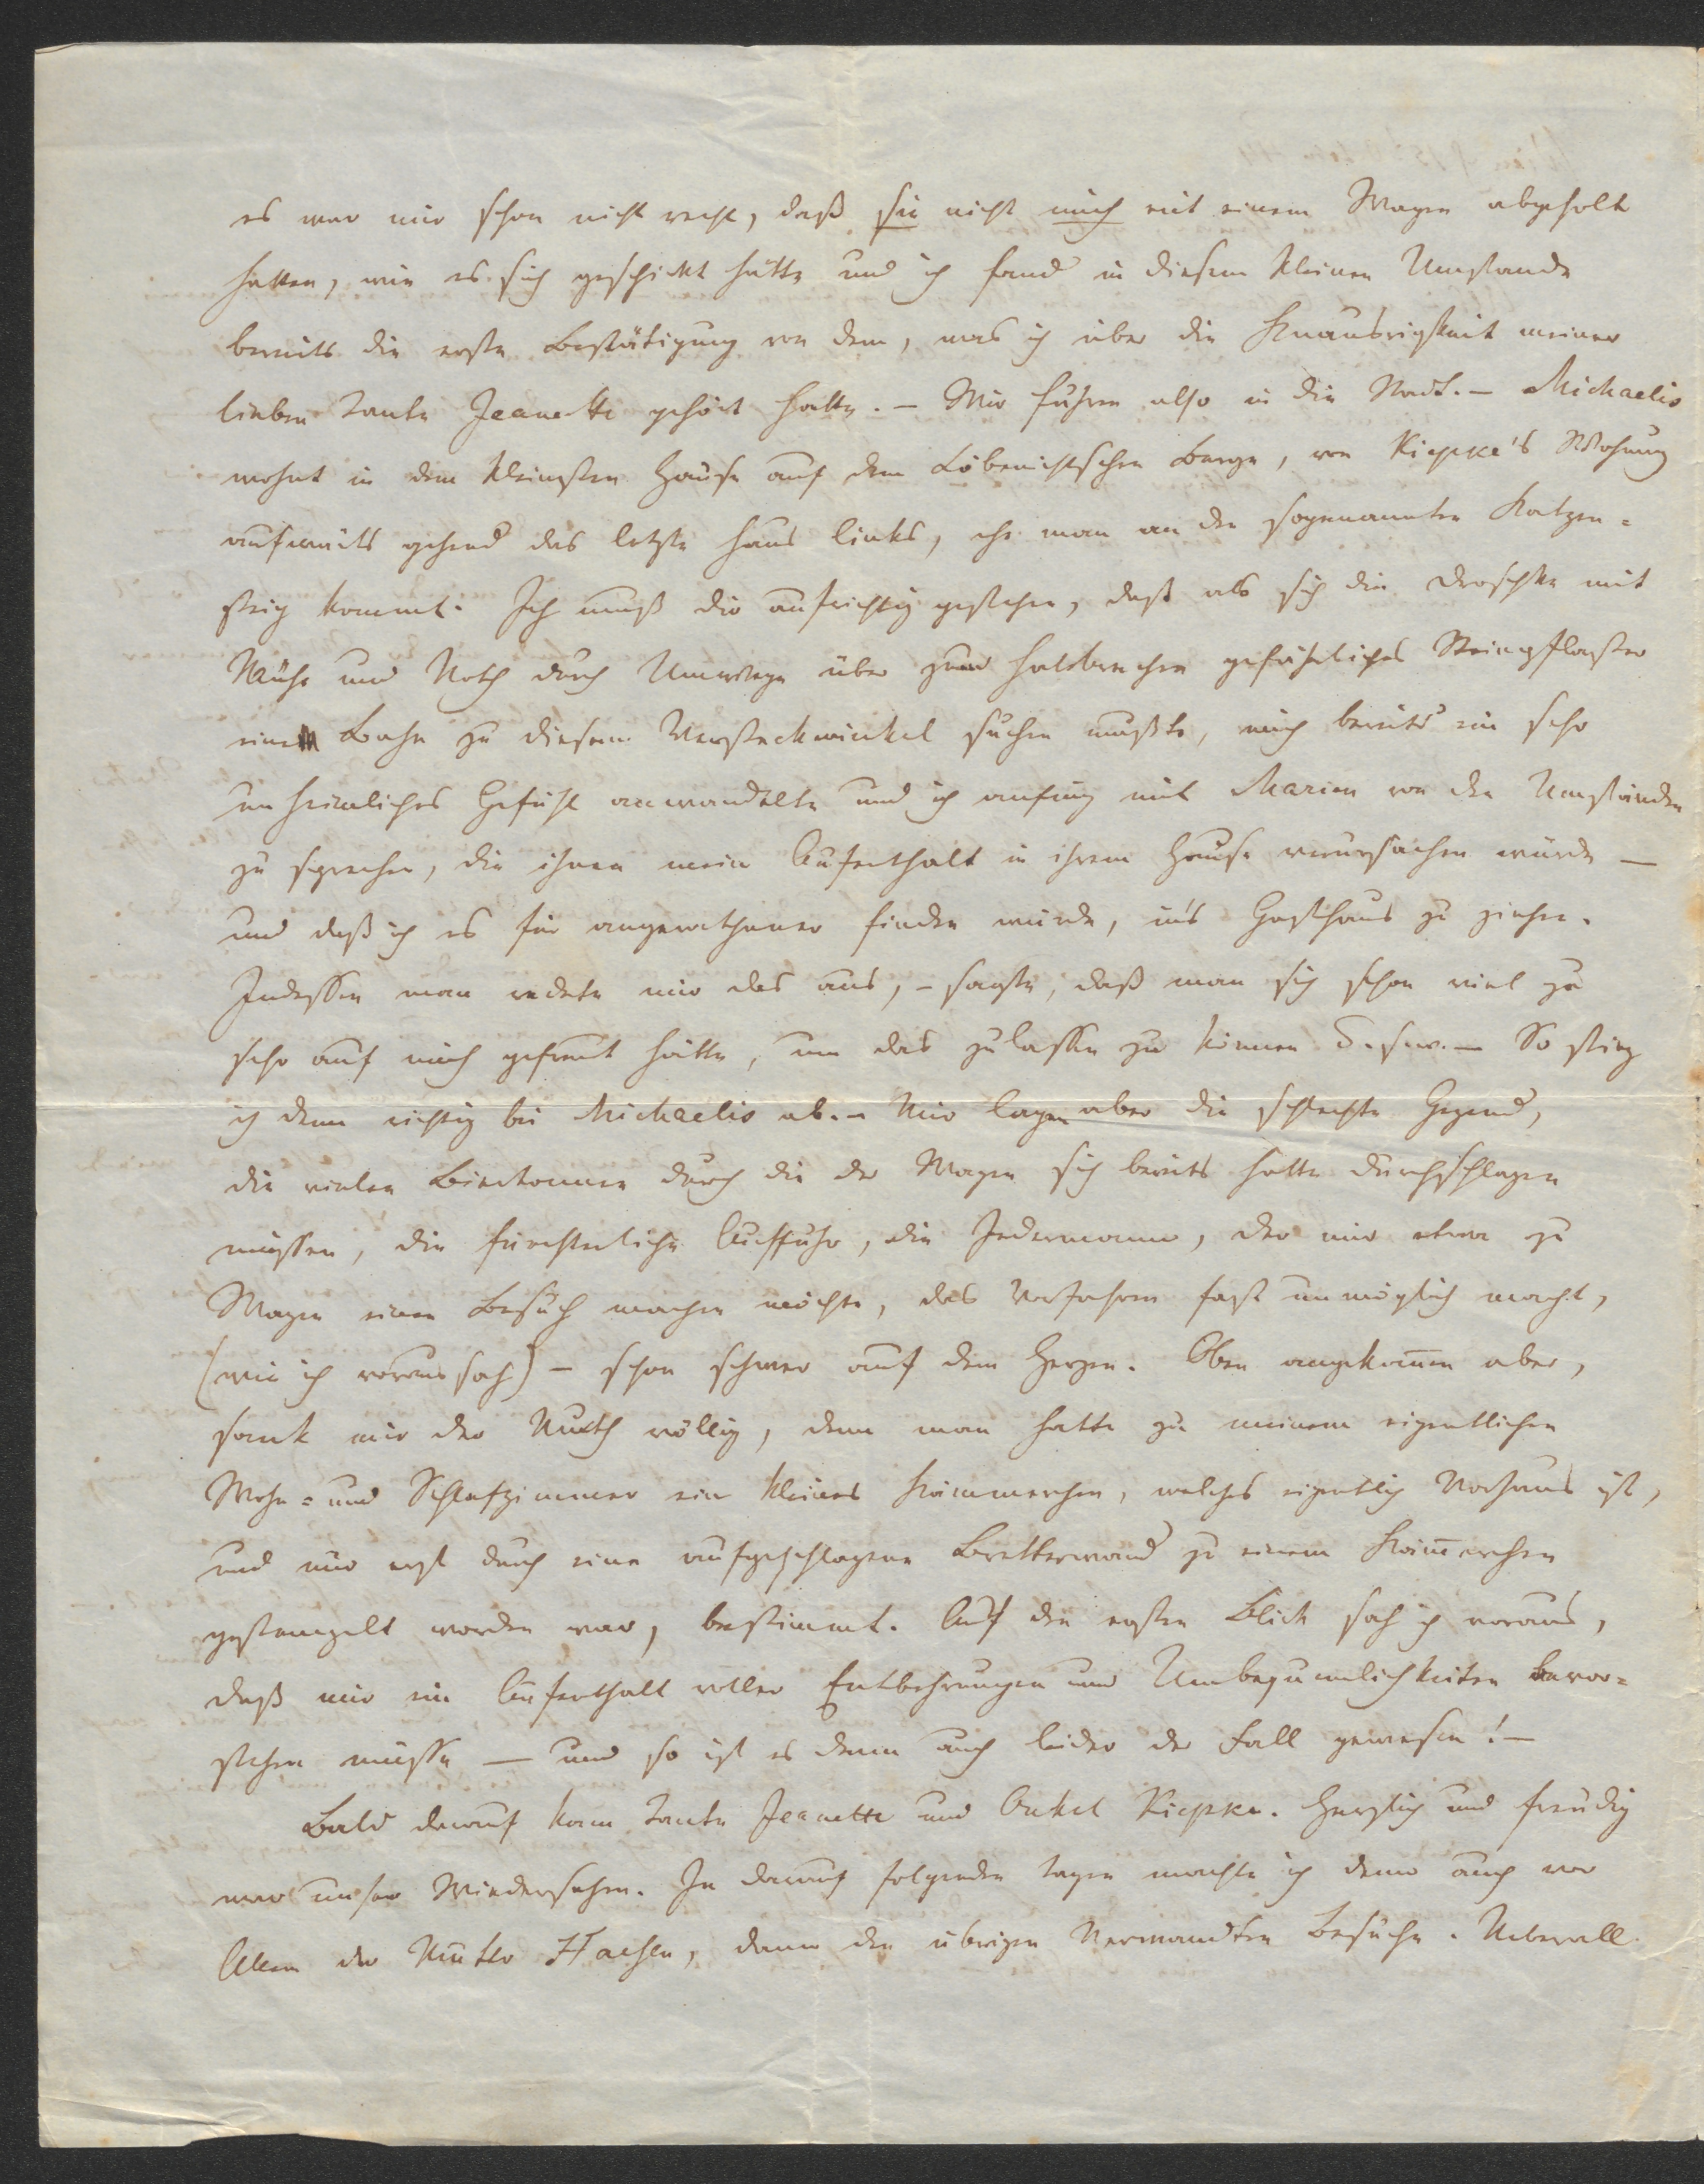 es war mir schon nicht recht, daß sie nicht mich mit einem Wagen abgeholt
hatten, wie es sich geschickt hätte und ich fand in diesem kleinen Umstande
bereits die erste Bestätigung von dem, was ich über die Knausrigkeit meiner
lieben Tante Jeanette gehört hatte. – Wir fuhren also in die Stadt. – Michaelis
wohnt in dem kleinsten Hause auf dem Löbenichtschen Berge, von Kiepke's Wohnung
aufwärts gehend das letzte Haus links, ehe man an den sogenannten Katzen=
steig kommt. Ich muß dir aufrichtig gestehen, daß als sich die Droschke mit
Mühe und Noth durch Umwege über zum halsbrechen gefährliches Steinpflaster
eine Bahn zu diesem Versteckwinkel suchen mußte, mich bereits ein sehr
unheimliches Gefühl anwandelte und ich anfing mit Marien von den Umständen
zu sprechen, die ihnen mein Aufenthalt in ihrem Hause verursachen würde —
und daß ich es für angerathener finden würde, in's Gasthaus zu ziehen.
Indessen man redete mir das aus, – sagte, daß man sich schon viel zu
sehr auf mich gefreut hätte, um das zulassen zu können u. s. w. – So stieg
ich denn richtig bei Michaelis ab. – Mir lagen aber die schlechte Gegend,
die vielen Biertonnen durch die der Wagen sich bereits hatte durchschlagen
müssen, die fürchterliche Auffuhr, die Jedermann, der mir etwa zu
Wagen einen Besuch machen möchte, das Vorfahren fast unmöglich macht,
(wie ich voraus sah) – schon schwer auf dem Herzen. Oben angekom̄en aber,
sank mir der Muth völlig, denn man hatte zu meinem eigentlichen
Wohn= und Schlafzimmer ein kleines Kämmerchen, welches eigentlich Vorhaus ist,
und nur erst durch eine aufgeschlagene Bretterwand zu einem Käm̄erchen
gestempelt worden war, bestimmt. Auf den ersten Blick sah ich voraus,
daß mir ein Aufenthalt voller Entbehrungen und Unbequemlichkeiten bevor=
stehen müsse — und so ist es denn auch leider der Fall gewesen! –
Bald darauf kam Tante Jeanette und Onkel Kiepke. Herzlich und freudig
war unser Wiedersehen. In darauf folgenden Tagen machte ich denn auch vor
Allem der Mutter Haesen, dann den übrigen Verwandten Besuche. Ueberall